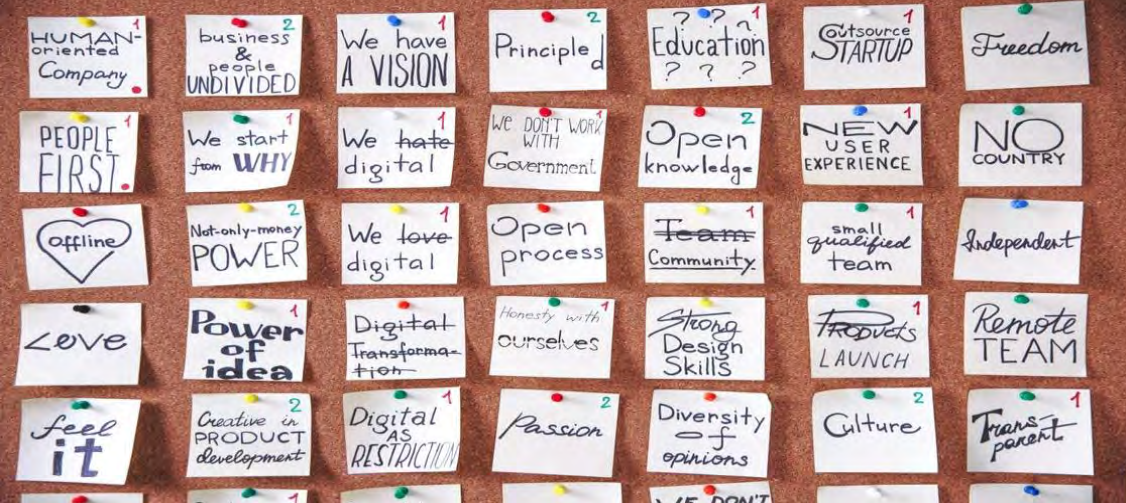 HUMAN-
oriented
Company
2
business
&
people
UNDIVIDED
1
We have
A VISION
2
Principled
? ? ? 1
Education
? ? ?
1
Outsource
STARTUP
Freedom
1
PEOPLE
FIRST.
1
We start
from WHY
1
We hate
digital
1
We DON'T WORK
WITH
Government
2
Open
knowledge
1
NEW
USER
EXPERIENCE
NO
COUNTRY
offline
2
Not-only-money
POWER
1
We love
digital
Open
process
Team
Community.
1
small
qualified
team
Independent
Love
1
Power
of
idea
Digital
Transforma-
tion
1
Honesty with
ourselves
Strong
Design
Skills
1
Products
LAUNCH
Remote
TEAM
feel
it
2
Creative in
PRODUCT
development
1
Digital
AS
RESTRICTION
2
Passion
Diversity
of
opinions
2
Culture
1
Trans-
parent
1
1
2
WE DON'T